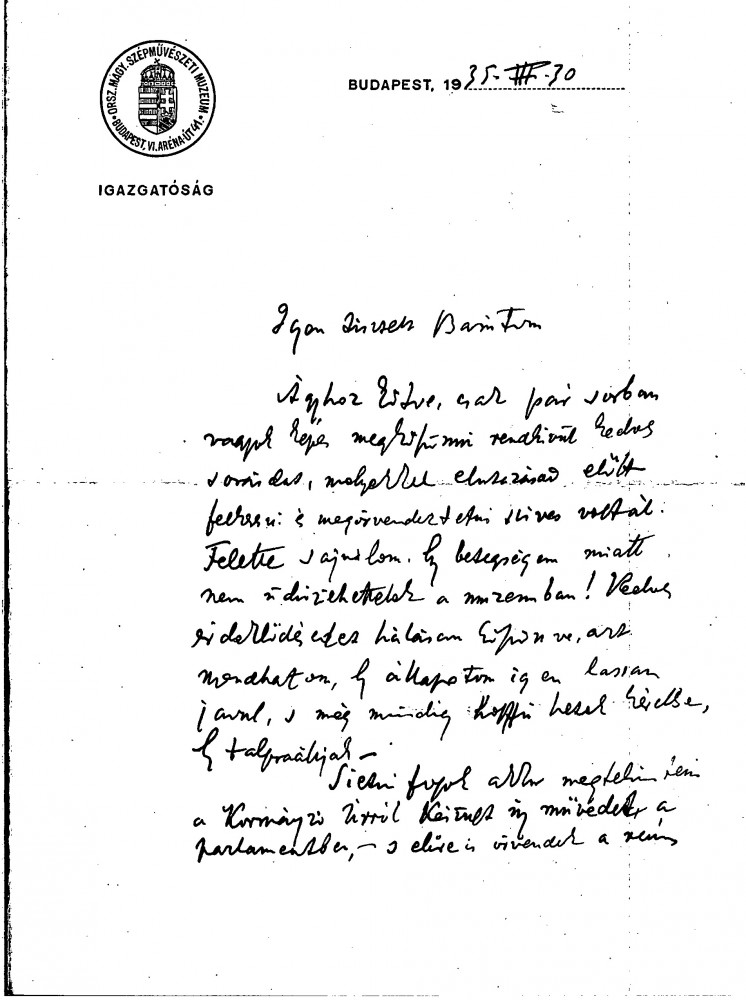 ORSZ. MAGY. SZÉPMŰVÉSZETI MUZEUM
BUDAPEST, VI. ARÉNA-ÚT 41.
IGAZGATÓSÁG
BUDAPEST, 1935. III. 30
Igen tisztelt Barátom
Ágyhoz kötve, csak pár sorban
vagyok képes megköszönni rendkivül kedves
soraidat, melyekkel elutazásod előtt
felkeresni s megörvendeztetni szives voltál.
Felette sajnálom, hogy betegségem miatt
nem üdvözölhettelek a muzeumban! Kedves
érdeklődésedet hálásan köszönve, azt
mondhatom, hogy állapotom igen lassan
javul, s még mindig kérdése,
hogy talpraálljak —
Sietni fogok akkor megtekinteni
a Kormányzó Úrról készült új művedet a
parlamentben, — s előre is örvendek a